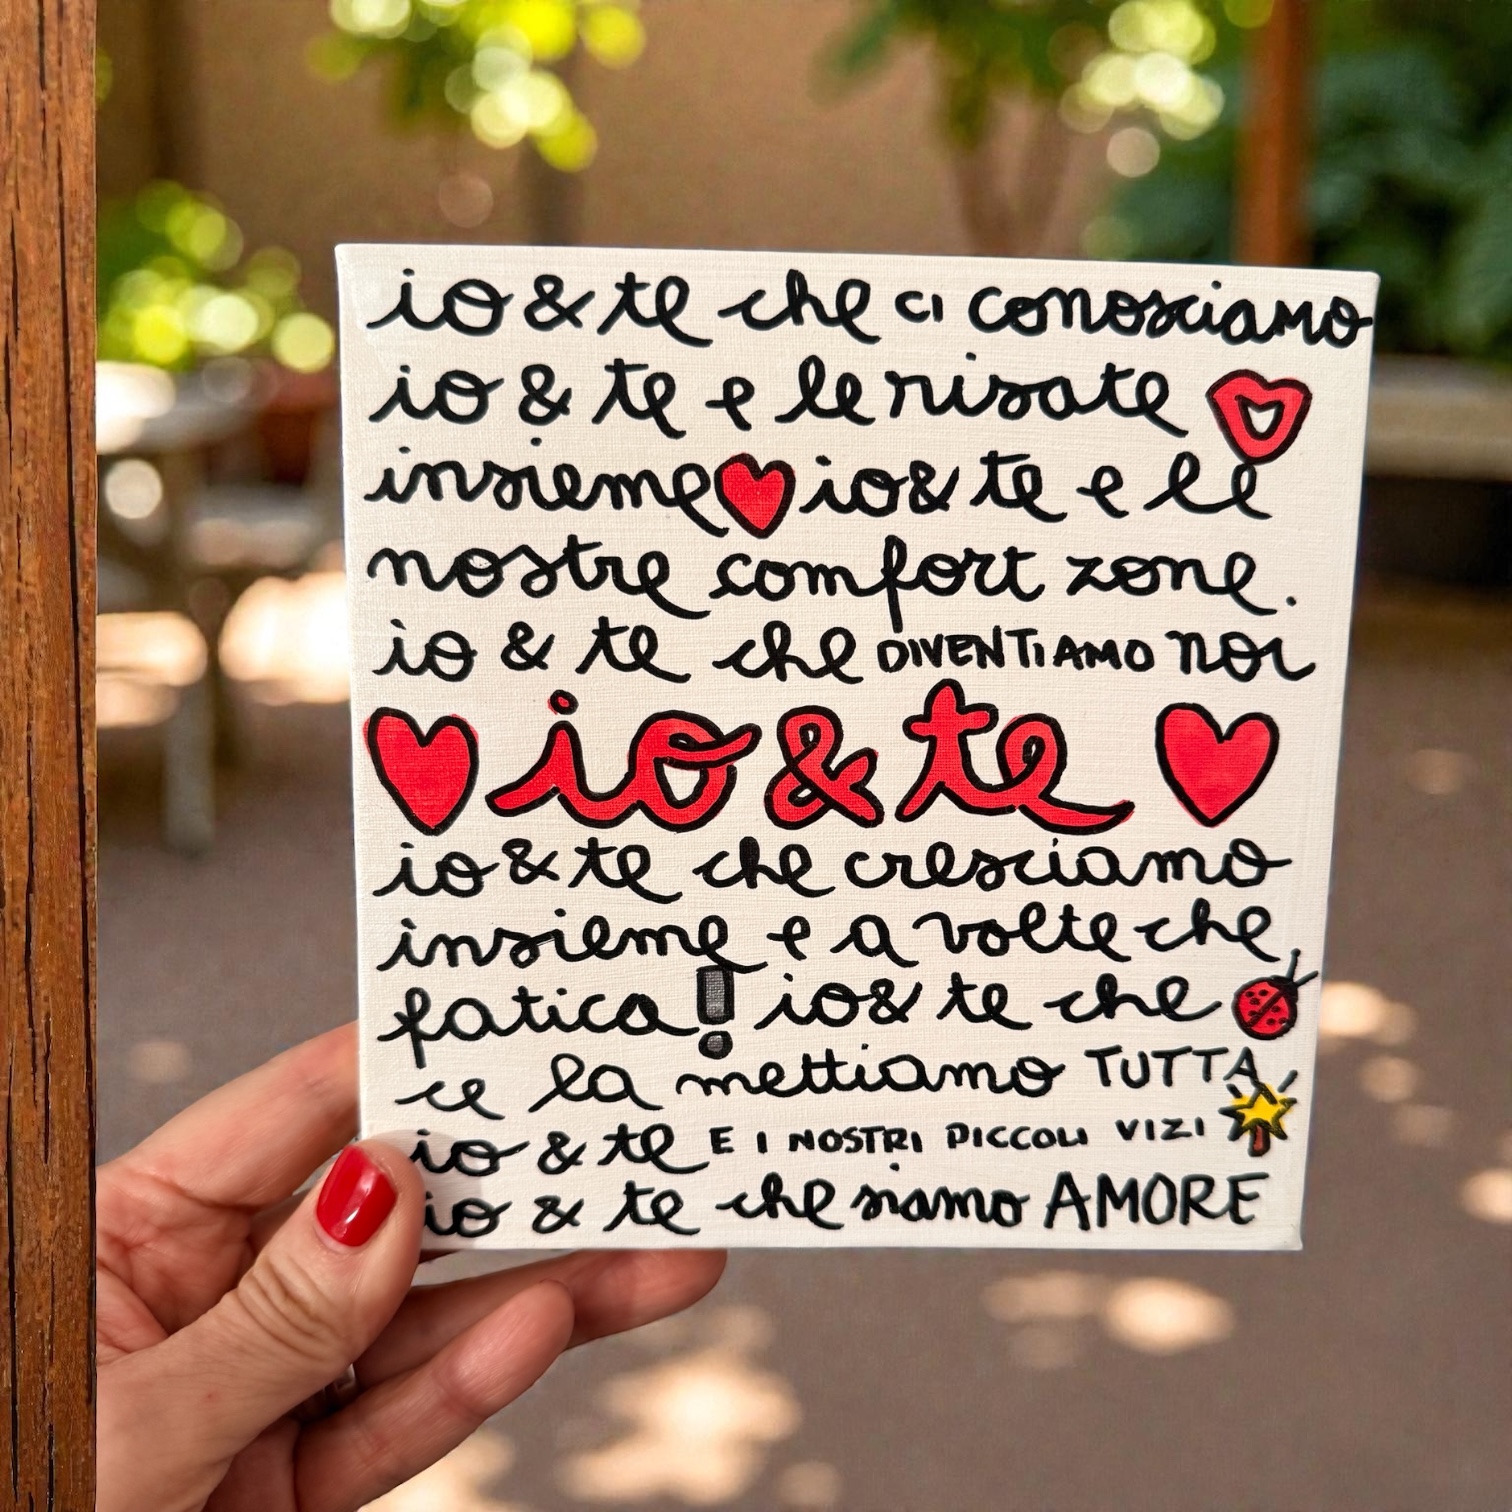 io & te che ci conosciamo
io & te e le risate
insieme io & te e le
nostre comfort zone.
io & te che DIVENTIAMO noi
io & te
io & te che cresciamo
insieme e a volte che
fatica! io & te che
ce la mettiamo TUTTA
io & te E I NOSTRI PICCOLI VIZI
io & te che siamo AMORE